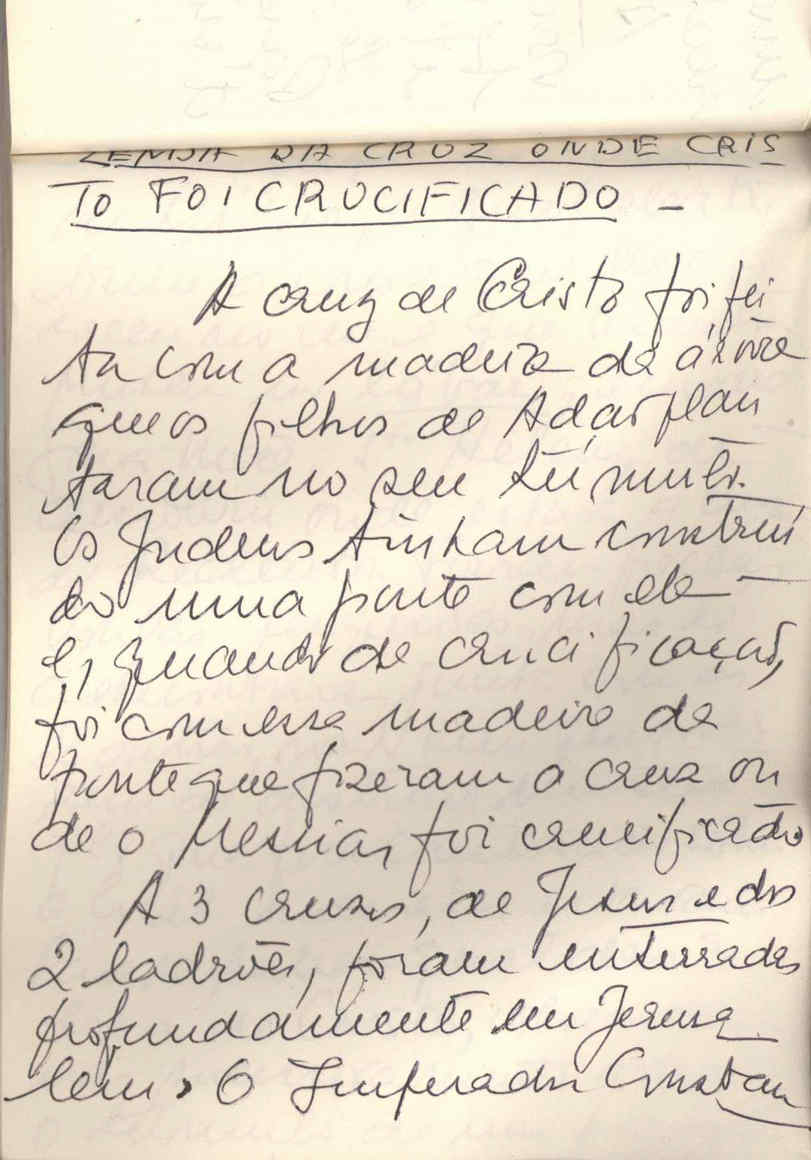 LENDA DA CRUZ ONDE CRIS
TO FOI CRUCIFICADO -
A cruz de Cristo foi fei
ta com a madeira da árvore
que os filhos de Adão plan
taram no seu túmulo.
Os Judeus tinham construi
do uma ponte com ela -
e, quando da crucificação,
foi com essa madeira da
ponte que fizeram a cruz on
de o Messias foi crucificado
A 3 cruzes, de Jesus e dos
2 ladrões, foram enterradas
profundamente em Jerusa
lem. O Imperador Constan